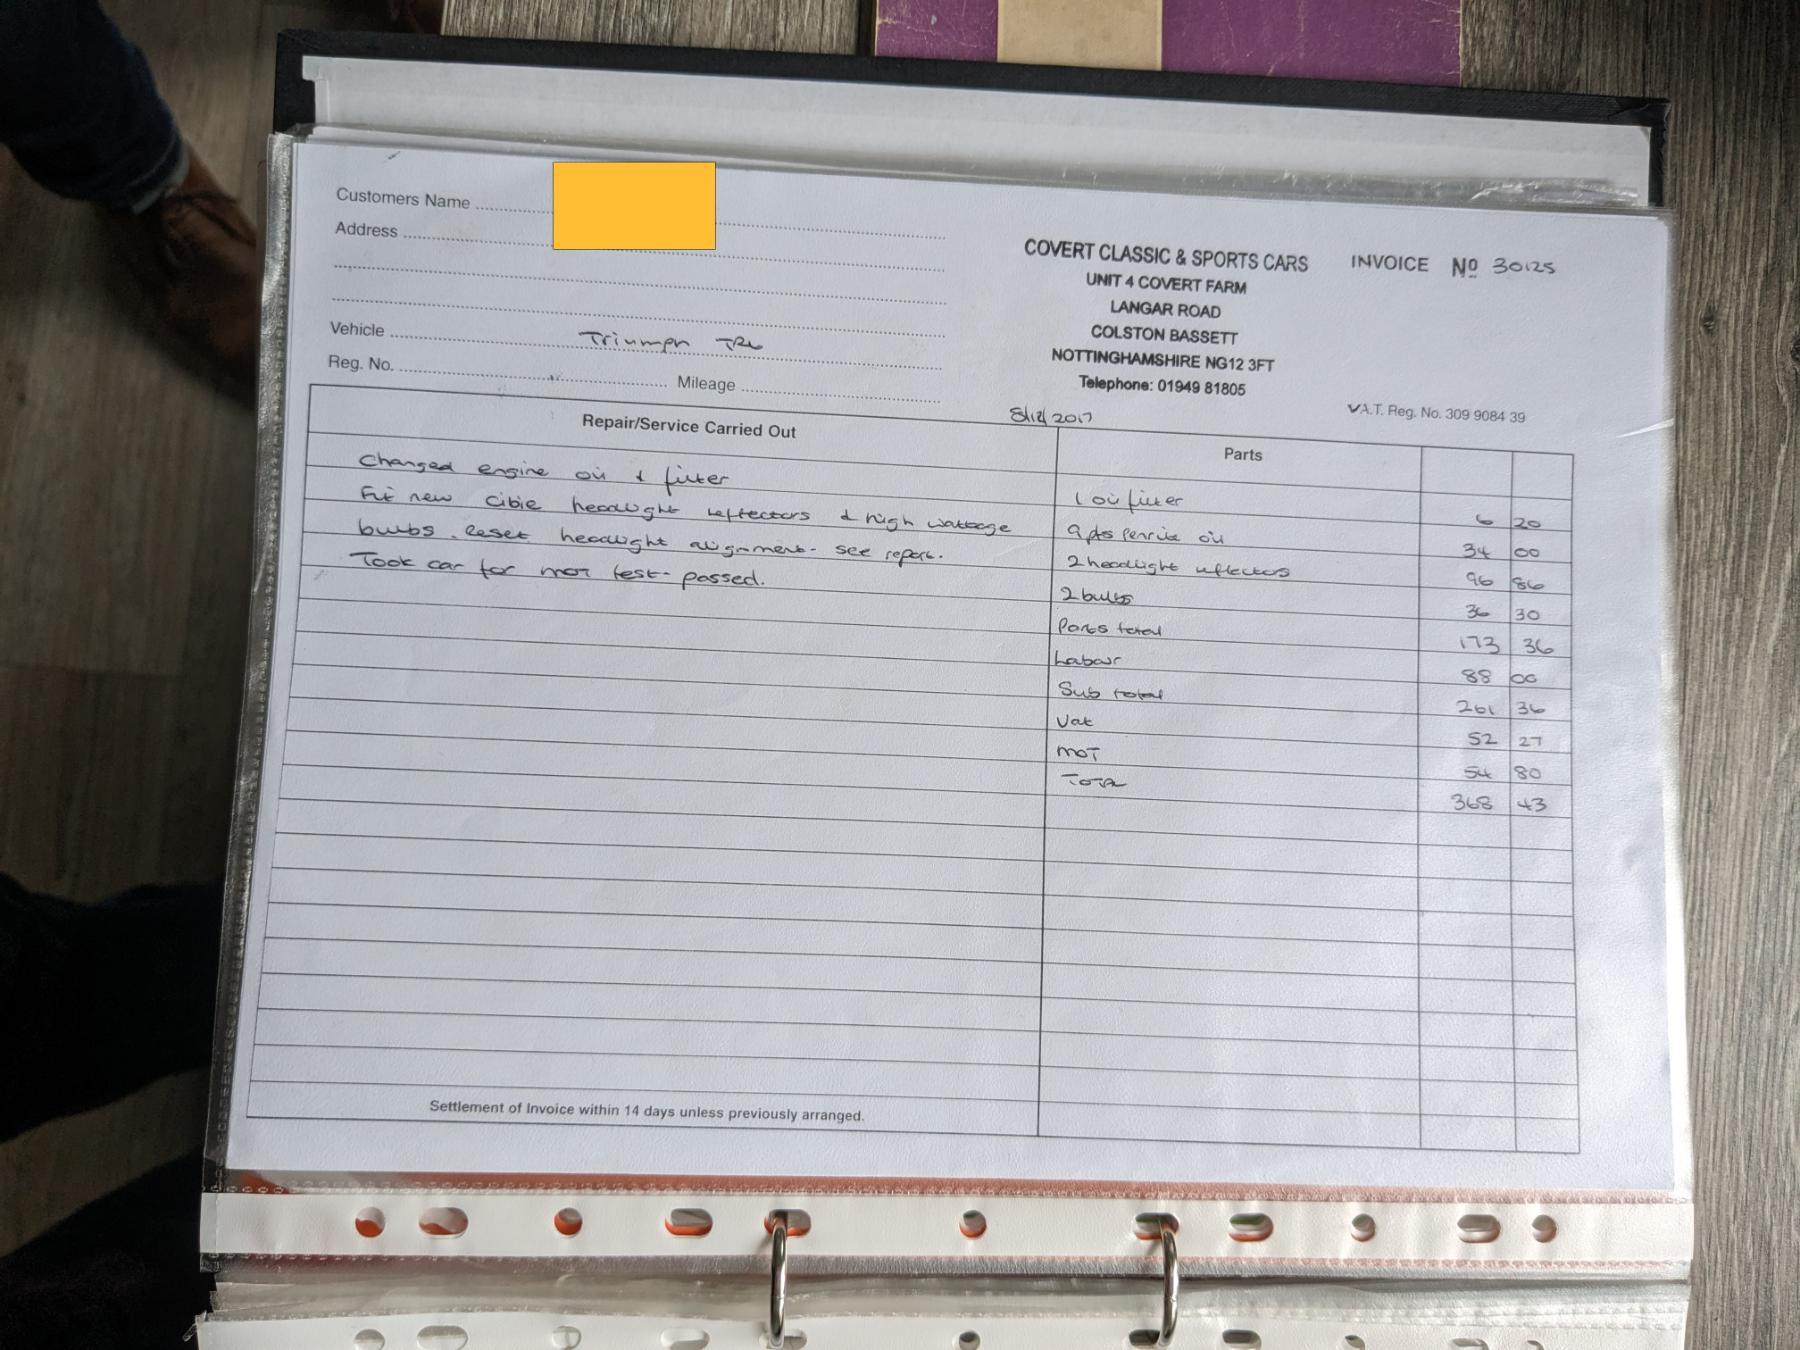 Customers Name
Address
COVERT CLASSIC & SPORTS CARS
UNIT 4 COVERT FARM
LANGAR ROAD
COLSTON BASSETT
NOTTINGHAMSHIRE NG12 3FT
Telephone: 01949 81805
INVOICE No 30125
V.A.T. Reg. No. 309 9084 39
Vehicle Triumph TR6
Reg. No. Mileage
8/12/2017
Repair/Service Carried Out
Changed engine oil & filter
Fit new Cibie headlight reflectors & high wattage
bulbs. Reset headlight alignment - see report.
Took car for MOT test - passed.
Parts
1 oil filter 6 20
9 pts Penrite oil 34 00
2 headlight reflectors 96 86
2 bulbs 36 30
Parts total 173 36
Labour 88 00
Sub total 261 36
Vat 52 27
MOT 54 80
TOTAL 368 43
Settlement of Invoice within 14 days unless previously arranged.